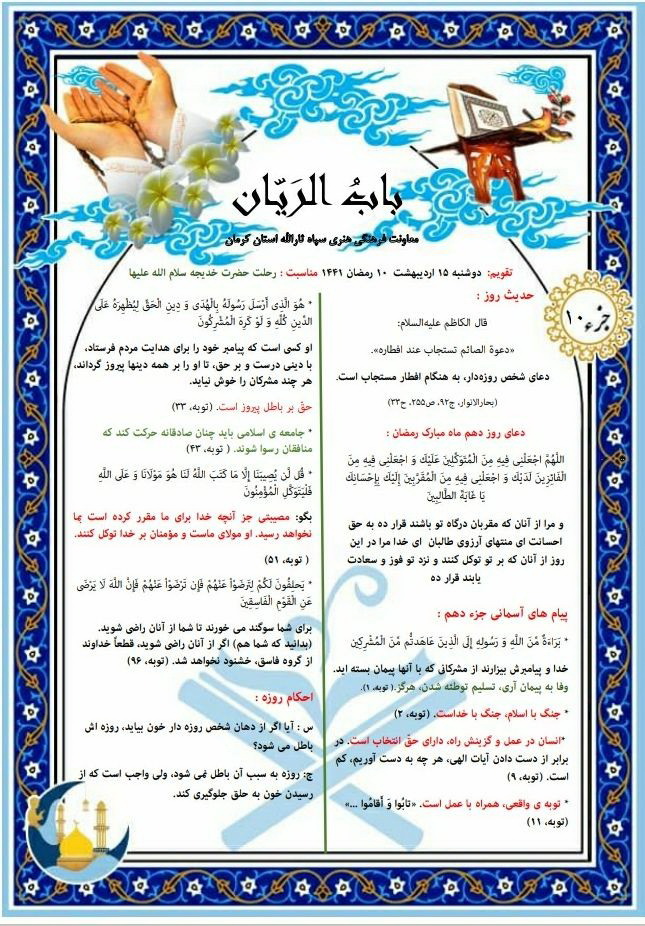 بابُ الرَیّان
معاونت فرهنگی هنری سپاه ثارالله استان کرمان
تقویم: دوشنبه ۱۵ اردیبهشت ۱۰ رمضان ۱۴۴۱ مناسبت : رحلت حضرت خدیجه سلام الله علیها
جزء ۱۰
حدیث روز :
قال الکاظم علیه‌السلام:
«دعوة الصائم تستجاب عند افطاره».
دعای شخص روزه‌دار، به هنگام افطار مستجاب است.
(بحارالانوار، ج۹۲، ص۲۵۵، ح۳۳)
دعای روز دهم ماه مبارک رمضان :
اللَّهُمَّ اجْعَلْنِی فِیهِ مِنَ الْمُتَوَکِّلِینَ عَلَیْکَ وَ اجْعَلْنِی فِیهِ مِنَ
الْفَائِزِینَ لَدَیْکَ وَ اجْعَلْنِی فِیهِ مِنَ الْمُقَرَّبِینَ إِلَیْکَ بِإِحْسَانِکَ
یَا غَایَةَ الطَّالِبِینَ
و مرا از آنان که مقربان درگاه تو باشند قرار ده به حق
احسانت ای منتهای آرزوی طالبان ای خدا مرا در این
روز از آنان که بر تو توکل کنند و نزد تو فوز و سعادت
یابند قرار ده
پیام های آسمانی جزء دهم :
* بَرَاءَةٌ مِّنَ اللَّهِ وَ رَسُولِهِ إِلَى الَّذِینَ عَاهَدتُّم مِّنَ الْمُشْرِکِینَ
خدا و پیامبرش بیزارند از مشرکانی که با آنها پیمان بسته اید.
وفا به پیمان آری، تسلیم توطئه شدن، هرگز. (توبه، ۱).
* جنگ با اسلام، جنگ با خداست. (توبه، ۲)
*انسان در عمل و گزینش راه، دارای حقّ انتخاب است. در
برابر از دست دادن آیات الهی، هر چه به دست آوریم، کم
است. (توبه، ۹)
* توبه ی واقعی، همراه با عمل است. «تابُوا وَ أَقامُوا ...»
(توبه، ۱۱)
* هُوَ الَّذِی أَرْسَلَ رَسُولَهُ بِالْهُدَى وَ دِینِ الْحَقِّ لِیُظْهِرَهُ عَلَى
الدِّینِ کُلِّهِ وَ لَوْ کَرِهَ الْمُشْرِکُونَ
او کسی است که پیامبر خود را برای هدایت مردم فرستاد،
با دینی درست و بر حق، تا او را بر همه دینها پیروز گرداند،
هر چند مشرکان را خوش نیاید.
حقّ بر باطل پیروز است. (توبه، ۳۳)
* جامعه ی اسلامی باید چنان صادقانه حرکت کند که
منافقان رسوا شوند. ( توبه، ۴۳)
* قُل لَّن یُصِیبَنَا إِلَّا مَا کَتَبَ اللَّهُ لَنَا هُوَ مَوْلَانَا وَ عَلَى اللَّهِ
فَلْیَتَوَکَّلِ الْمُؤْمِنُونَ
بگو: مصیبتی جز آنچه خدا برای ما مقرر کرده است بما
نخواهد رسید. او مولای ماست و مؤمنان بر خدا توکل کنند.
( توبه، ۵۱)
* یَحْلِفُونَ لَکُمْ لِتَرْضَوْاْ عَنْهُمْ فَإِن تَرْضَوْاْ عَنْهُمْ فَإِنَّ اللَّهَ لَا یَرْضَى
عَنِ الْقَوْمِ الْفَاسِقِینَ
برای شما سوگند می خورند تا شما از آنان راضی شوید.
(بدانید که شما هم) اگر از آنان راضی شوید، قطعاً خداوند
از گروه فاسق، خشنود نخواهد شد. (توبه، ۹۶)
احکام روزه :
س : آیا اگر از دهان شخص روزه دار خون بیاید، روزه اش
باطل می شود؟
ج: روزه به سبب آن باطل نمی شود، ولی واجب است که از
رسیدن خون به حلق جلوگیری کند.